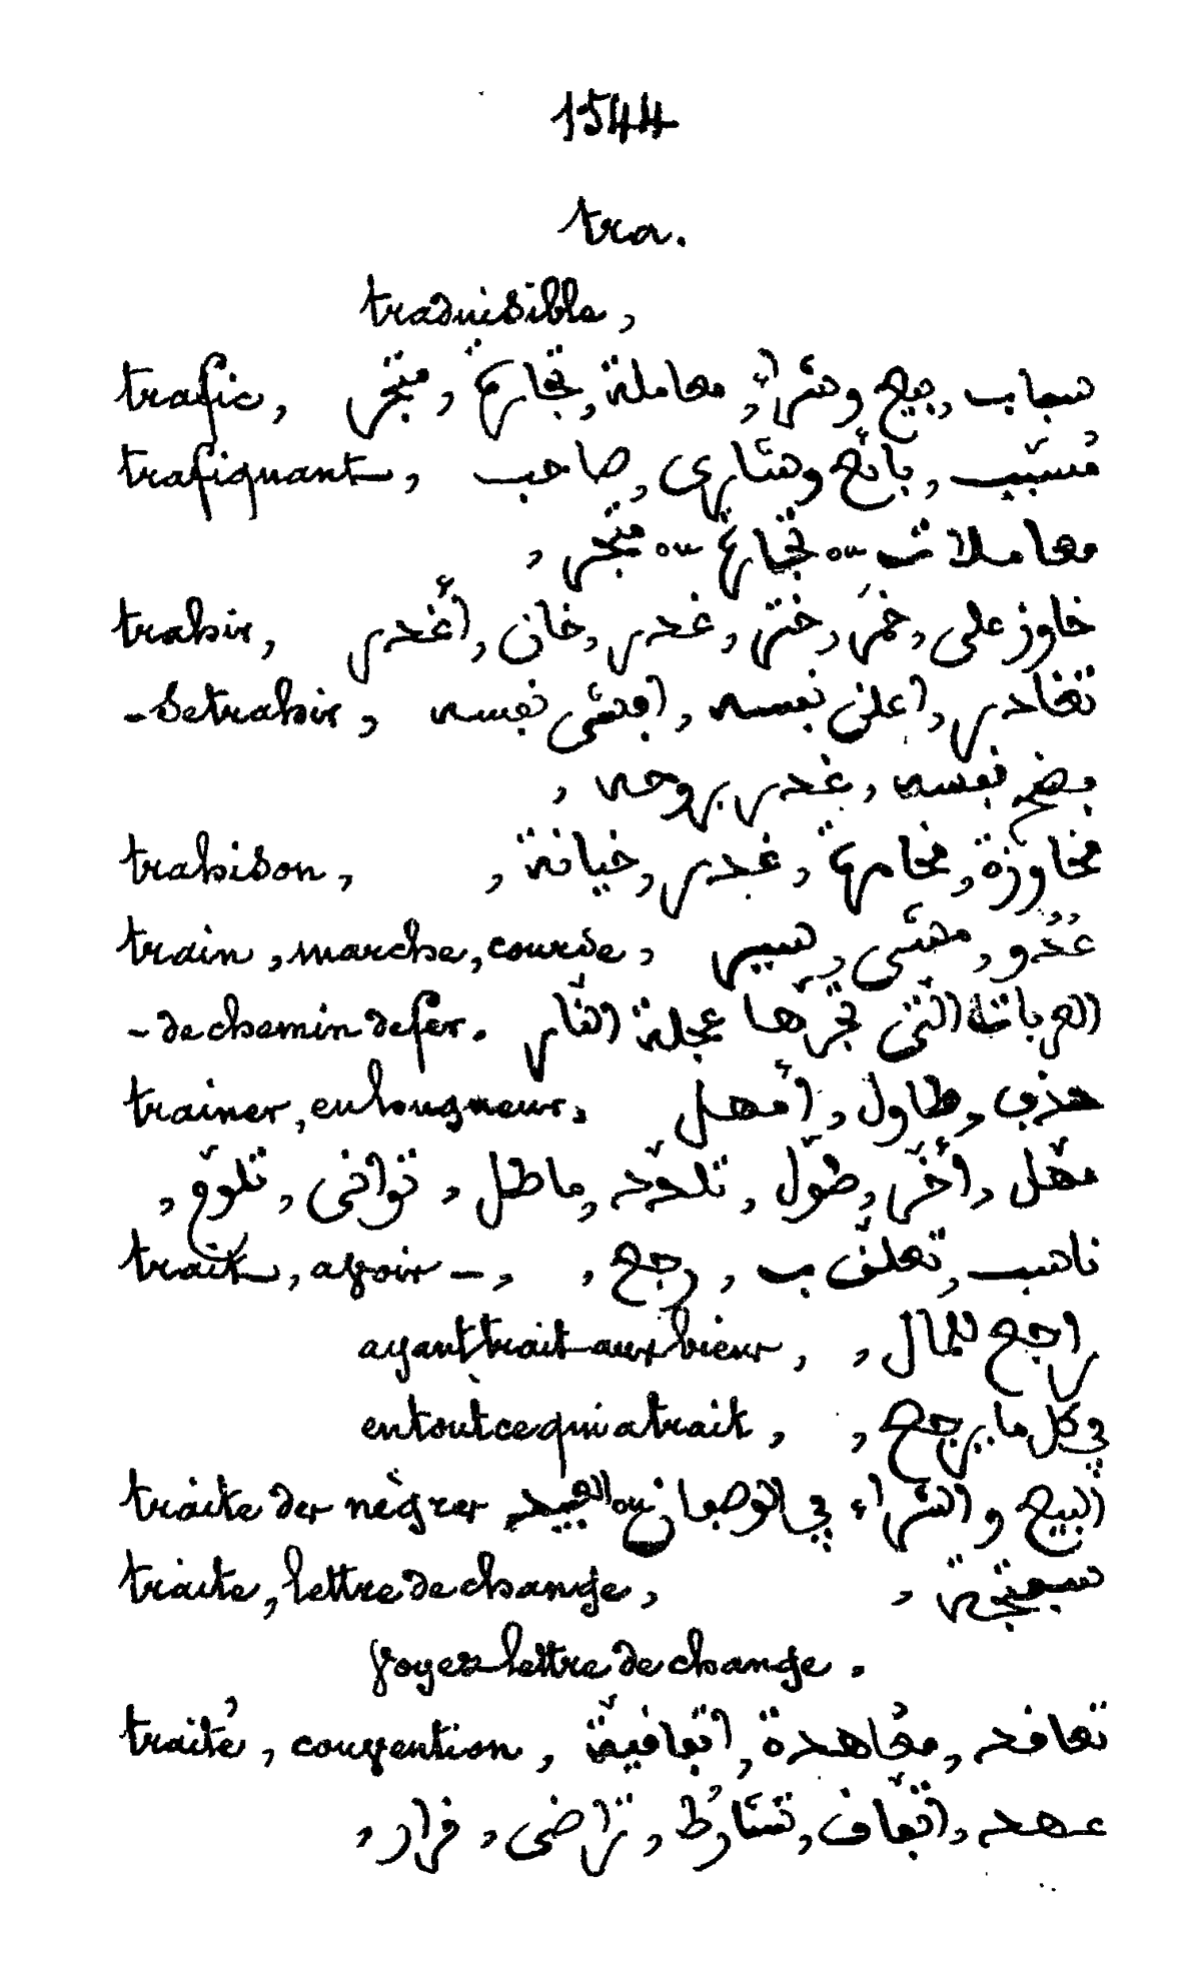 1544
tra.
traduisible,
trafic, سباب, بيع وشراء, معاملة, تجارة, متجر
trafiquant, مُسبّب, بائع وشاري, صاحب
معاملات ou تجارة ou متجر,
trahir, خاوز على, خمر, ختر, غدر, خان, أغدر
- se trahir, تغادر, اعلن نفسه, افشى نفسه
بضح نفسه, غدر بروحه,
trahison, مخاوزة, مخامرة, غدر, خيانة,
train, marche, course, عدو, مشي, سير
- de chemin de fer. العربات التي تجرّها عجلة النّار
trainer, en longueur, هذب, طاول, أمهل
مهّل, أخّر, طوّل, تلدّد, ماطل, توانى, تلوّم,
trait, avoir -, ناسب, تعلّق ب, رجع,
ayant trait aux biens, راجع للمال,
en tout ce qui a trait, في كل ما يرجع,
traite des nègres البيع والشراء في الوصفان ou العبيد
traite, lettre de change, سفتجة,
voyez lettre de change.
traité, convention, تعاقد, معاهدة, اتفاقيّة
عهد, اتّفاق, تشارُط, تراضي, قرار,